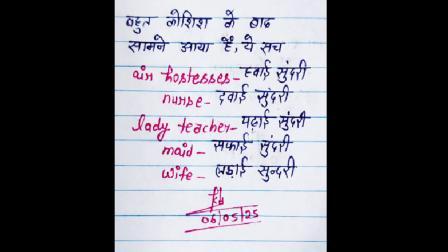 बहुत कोशिश के बाद
सामने आया हैं, ये सच
air hostesses- हवाई सुंदरी
nurse- दवाई सुंदरी
lady teacher- पढ़ाई सुंदरी
maid- सफाई सुंदरी
wife- लड़ाई सुन्दरी
06/05/25